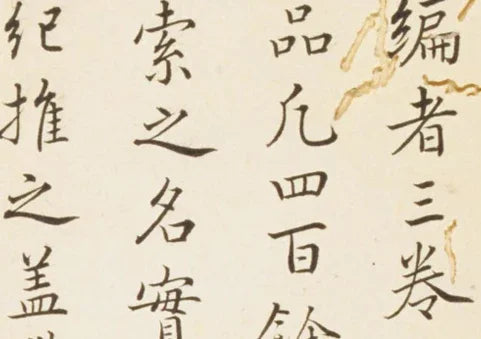 编者三卷
品凡四百餘
索之名實
纪推之盖